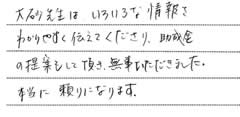 大砂先生は いろいろな情報を
わかりやすく伝えてくださり、助成金
の提案もして頂き、無事いただきました。
本当に 頼りになります。